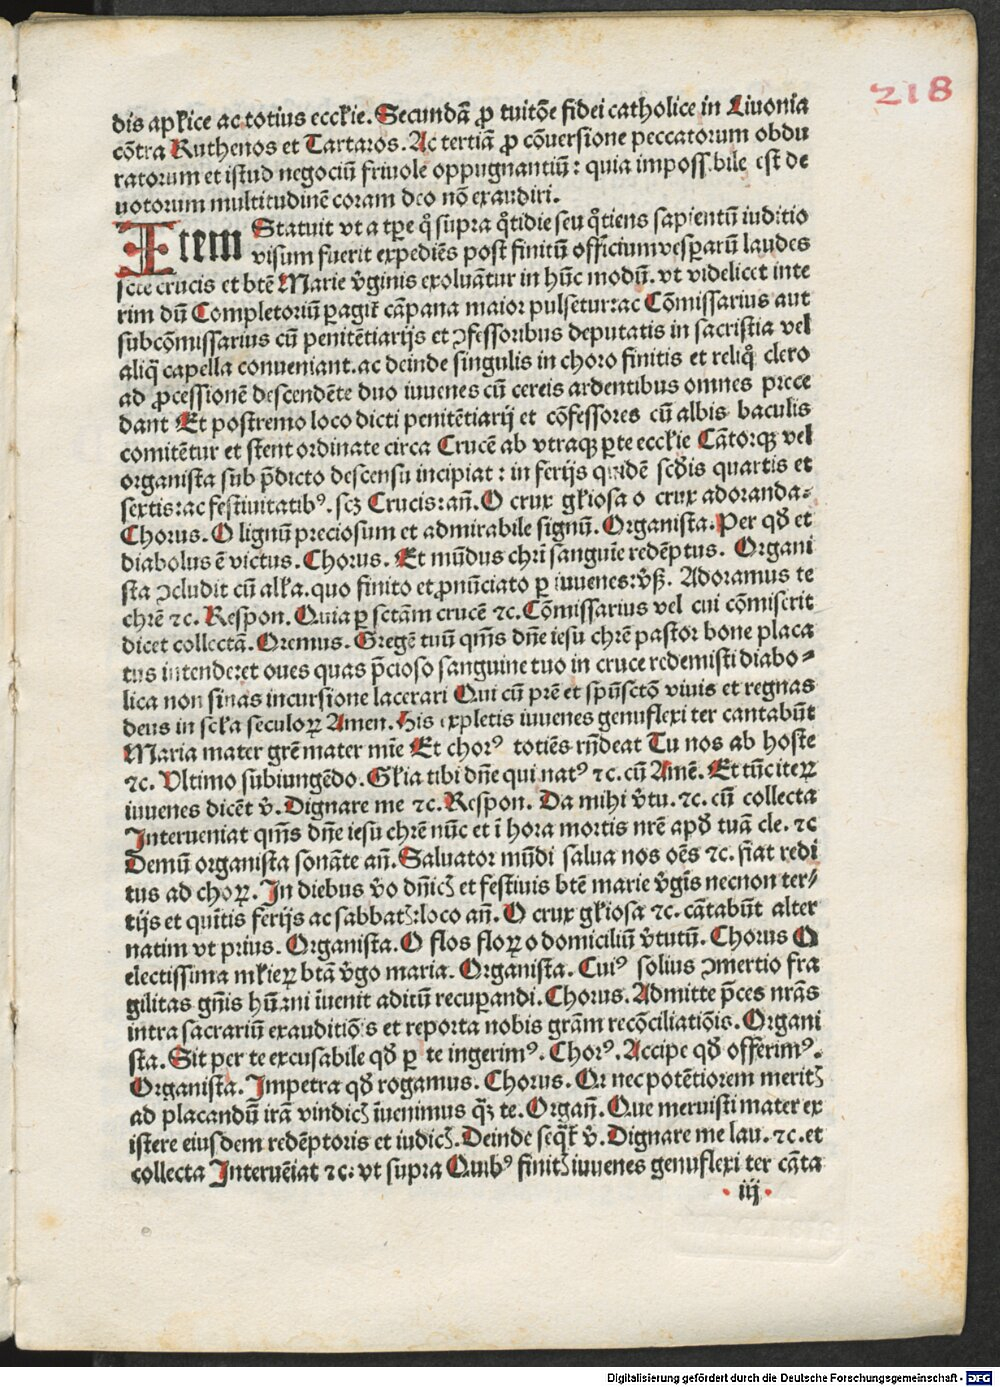 218
dis apl̄ice ac totius eccl̄ie. Secundā ꝓ tuitōe fidei catholice in Liuonia
cōtra Ruthenos et Tartaros. Ac tertiā ꝓ cōuersione peccatorum obdu
ratorum et istud negociū friuole oppugnantiū: quia imposs.bile est de
uotorum multitudinē coram deo nō exaudiri.
Item Statuit vt a tꝑe q̊ supra q̊tidie seu q̊tiens sapientū iuditio
visum fuerit expediēs post finitū officium vesparū laudes
scte crucis et btē Marie v̄ginis exoluātur in hūc modū. vt videlicet inte
rim dū Completoriū ꝑagit̄ cāpana maior pulsetur: ac Cōmissarius aut
subcōmissarius cū penitētiarijs et ꝯfessoribus deputatis in sacristia vel
aliq̄ capella conueniant. ac deinde singulis in choro finitis et reliq̊ clero
ad ꝓcessionē descendēte duo iuuenes cū cereis ardentibus omnes prece
dant Et postremo loco dicti penitētiarij et cōfessores cū albis baculis
comitētur et stent ordinate circa Crucē ab vtraqꝫ ꝑte eccl̄ie Cātorqꝫ vel
organista sub p̄dicto descensu incipiat: in ferijs quidē scd̄is quartis et
sextis: ac festiuitatibꝰ. scꝫ Crucis: an̄. O crux gl̄iosa o crux adoranda⸗
Chorus. O lignū preciosum et admirabile signū. Organista. Per qd̄ et
diabolus ē victus. Chorus. Et mūdus chrī sanguīe redēptus. Organi
sta ꝯcludit cū all̄a. quo finito et ꝓnūciato ꝑ iuuenes: v̄ß. Adoramus te
chrē ⁊c. Respon. Quia ꝑ sctām crucē ⁊c. Cōmissarius vel cui cōmiserit
dicet collectā. Oremus. Gregē tuū qm̄s dn̄e iesu chrē pastor bone placa
tus intenderet oues quas p̄cioso sanguine tuo in cruce redemisti diabo⸗
lica non sinas incursione lacerari Qui cū prē et spūsctō viuis et regnas
deus in scl̄a seculoꝝ Amen. His expletis iuuenes genuflexi ter cantabūt
Maria mater grē mater mīe Et chorꝰ totiēs rn̄deat Tu nos ab hoste
⁊c. Vltimo subiungēdo. Gl̄ia tibi dn̄e qui natꝰ ⁊c. cū Amē. Et tūc iteꝝ
iuuenes dicēt v̄. Dignare me ⁊c. Respon. Da mihi v̄tu. ⁊c. cū collecta
Interueniat qm̄s dn̄e iesu chrē nūc et ī hora mortis nrē apd̄ tuā cle. ⁊c
Demū organista sonāte an̄. Saluator mūdi salua nos oēs ⁊c. fiat redi
tus ad choꝝ. In diebus v̄o dn̄icꝭ et festiuis btē marie v̄gīs necnon ter⸗
tijs et quītis ferijs ac sabbatꝭ: loco an̄. O crux gl̄iosa ⁊c. cātabūt alter
natim vt prius. Organista. O flos floꝝ o domiciliū v̄tutū. Chorus O
electissima ml̄ieꝝ btā v̄go maria. Organista. Cuiꝰ solius ꝯmertio fra
gilitas gn̄is hūani īuenit aditū recupandi. Chorus. Admitte p̄ces nrās
intra sacrariū exauditiōs et reporta nobis grām recōciliatiōis. Organi
sta. Sit per te excusabile qd̄ ꝑ te ingerimꝰ. Chorꝰ. Accipe qd̄ offerimꝰ.
Organista. Impetra qd̄ rogamus. Chorus. Qr nec potētiorem meritꝭ
ad placandū irā vindicꝭ īuenimus q̄ꝫ te. Organ̄. Que meruisti mater ex
istere eiusdem redēptoris et iudicꝭ. Deinde seqt̄ v̄. Dignare me lau. ⁊c. et
collecta Interuēiat ⁊c. vt supra Quibꝰ finitꝭ iuuenes genuflexi ter cāta
iij
Digitalisierung gefördert durch die Deutsche Forschungsgemeinschaft - DFG